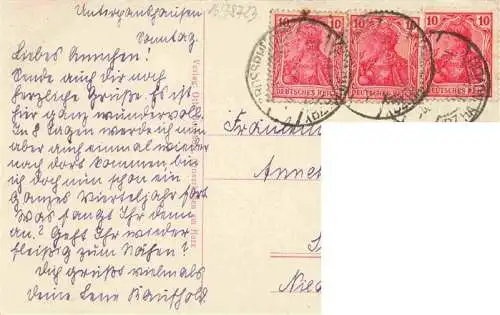 Unterpankhausen
Sonntag.
Liebes Annchen!
Sende auch dir noch
herzliche Grüße. Es ist
hier ganz wundervoll.
In 8 Tagen werde ich nun
aber auch einmal wieder
nach dort kommen, bin
ich doch nun schon ein
ganzes Vierteljahr fort
Was fangt Ihr denn
an? Geht Ihr wieder
fleißig zum Nähen?
Dich grüßt vielmals
deine Lene Kaufhold.
Verlag
am Harz
10 10 10
DEUTSCHES REICH DEUTSCHES REICH DEUTSCHES REICH
Fräulein
Anne
Nied